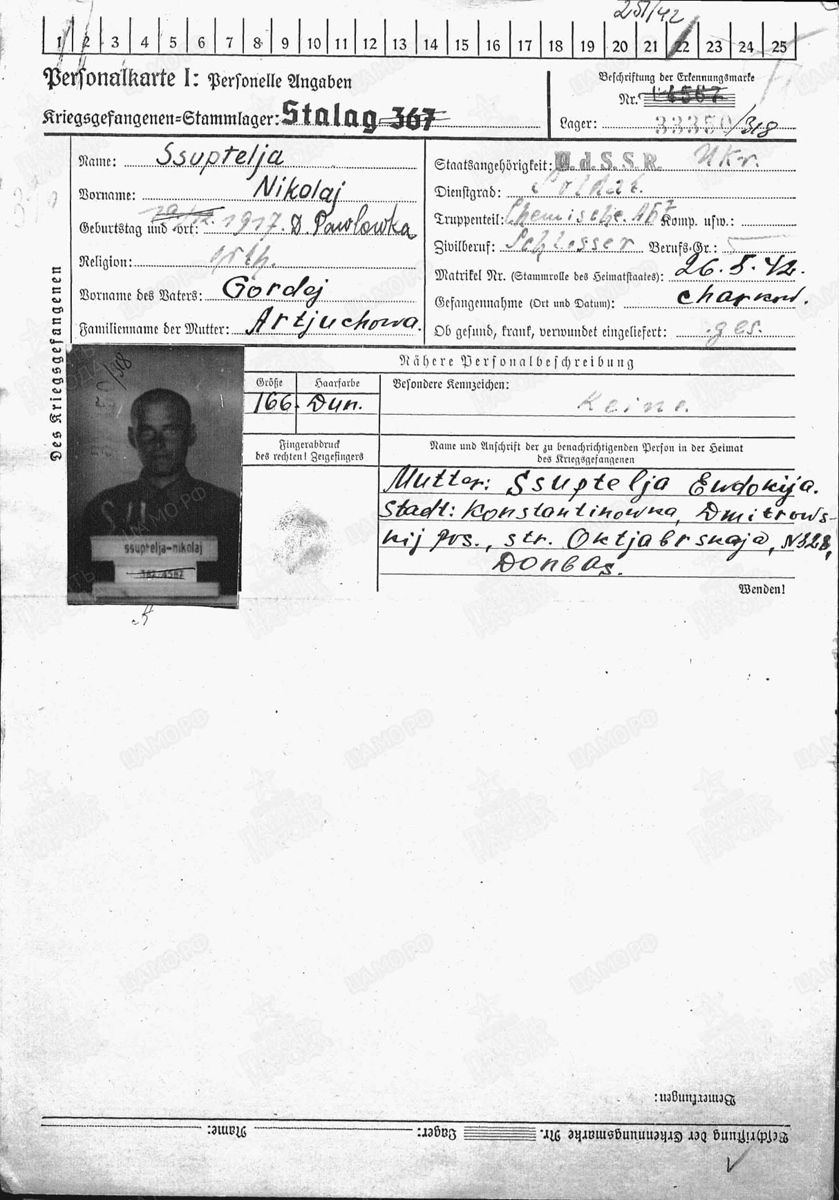 251/42
1 2 3 4 5 6 7 8 9 10 11 12 13 14 15 16 17 18 19 20 21 22 23 24 25
Personalkarte I: Personelle Angaben
Beschriftung der Erkennungsmarke
Nr.
Kriegsgefangenen=Stammlager: Stalag 367
Lager: 33350/318
Des Kriegsgefangenen
Name: Ssuptelja
Vorname: Nikolaj
Geburtstag und =ort: 1917. D. Pawlowka
Religion: orth.
Vorname des Vaters: Gordej
Familienname der Mutter: Artjuchowa.
Staatsangehörigkeit: U.d.S.S.R. Ukr.
Dienstgrad: Soldat.
Truppenteil: Chemische. Komp. usw.:
Zivilberuf: Schlosser Berufs=Gr.:
Matrikel Nr. (Stammrolle des Heimatstaates): 26.5.42.
Gefangennahme (Ort und Datum): Charkow.
Ob gesund, krank, verwundet eingeliefert: ges.
Nähere Personalbeschreibung
Größe Haarfarbe
166. Dun.
Besondere Kennzeichen:
Keine.
Fingerabdruck
des rechten! Zeigefingers
Name und Anschrift der zu benachrichtigenden Person in der Heimat
des Kriegsgefangenen
Mutter: Ssuptelja Ewdokija.
Stadt: Konstantinowka, Dmitrows-
kij pos., str. Oktjabrskaja, N328,
Donbas.
Wenden!
/318
ssuptelja-nikolaj
Bemerkungen:
Beschriftung der Erkennungsmarke Nr. Lager: Name:
ЦАМО РФ
ПАМЯТЬ НАРОДА